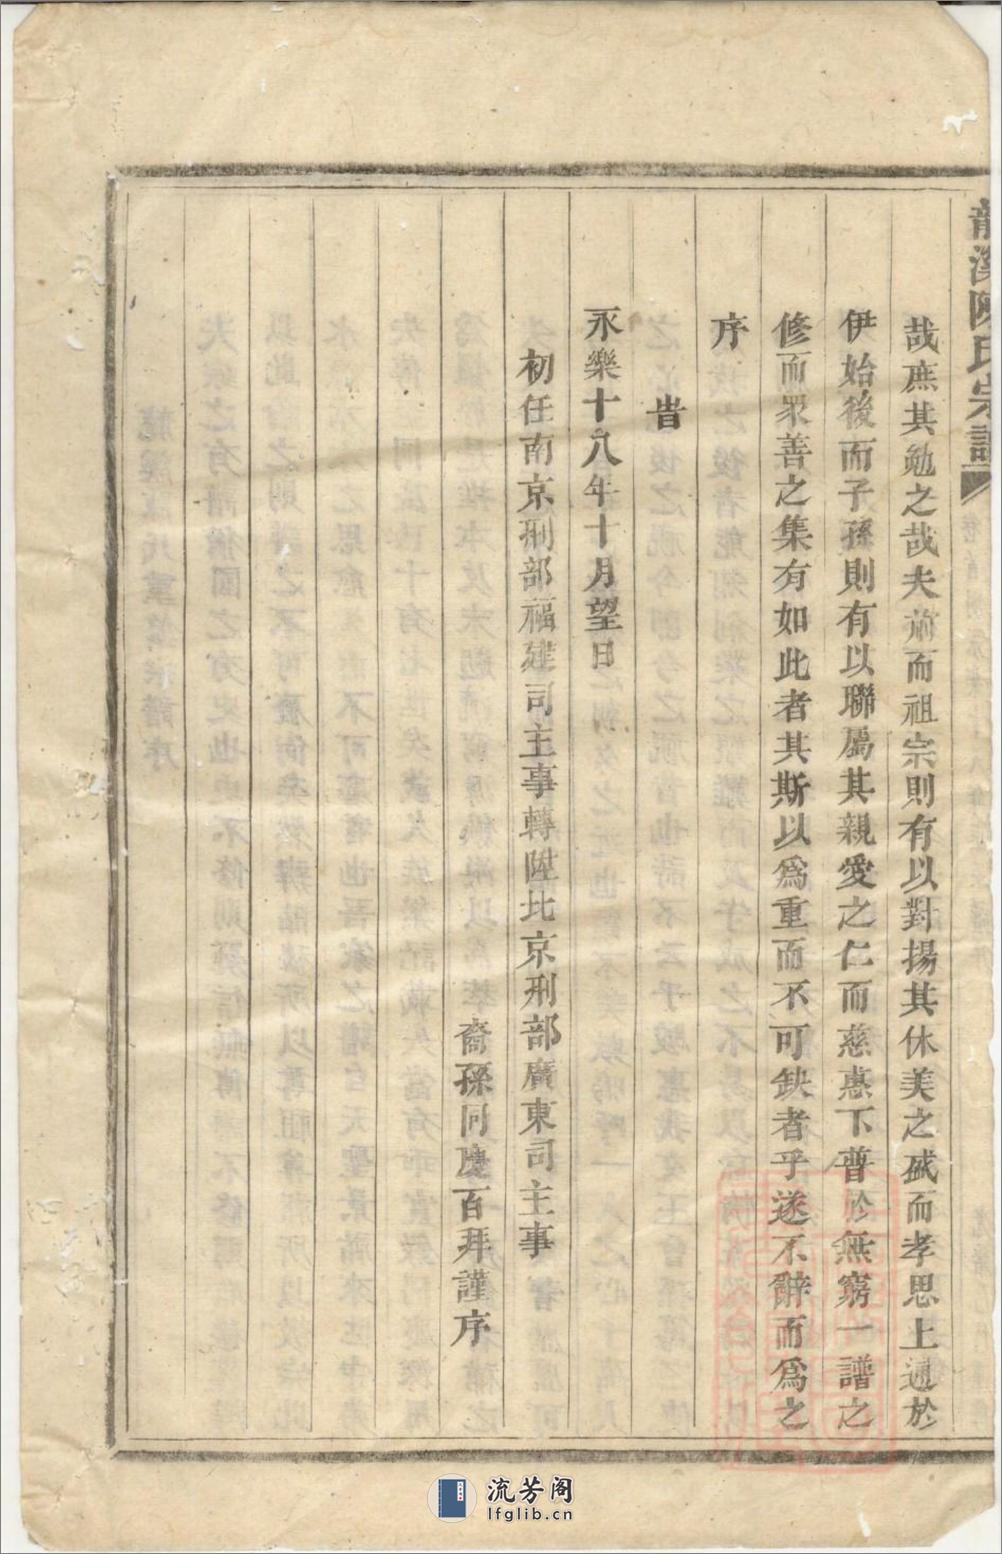 龍溪陳氏宗譜
哉庶其勉之哉夫前而祖宗則有以對揚其休美之盛而孝思上通於
伊始後而子孫則有以聯屬其親愛之仁而慈惠下普於無窮一譜之
修而眾善之集有如此者其斯以為重而不可缺者乎遂不辭而為之
序
旹
永樂十八年十月望日
初任南京刑部福建司主事轉陞北京刑部廣東司主事
裔孫同慶百拜謹序
流芳阁
lfglib.cn